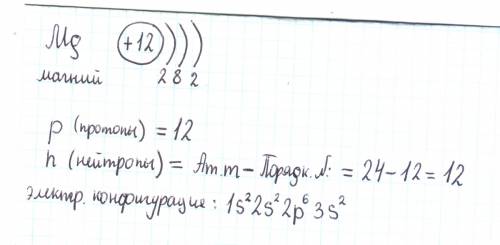 Mg +12
магний 2 8 2
p (протоны) = 12
n (нейтроны) = Ат.m - Порядк.№: = 24-12 = 12
электр. конфигурация: 1s²2s²2p⁶3s²